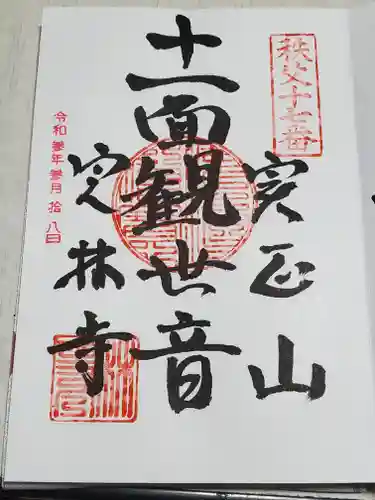 秩父十七番
実正山
十一面観世音
定林寺
令和参年参月拾八日